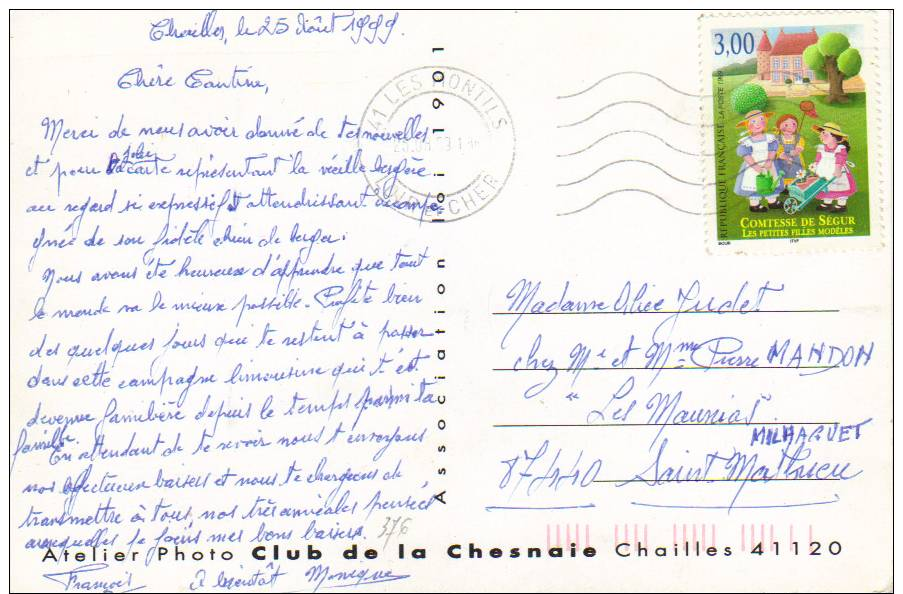 Chailles, le 25 Août 1999.
Chère Tantine,
Merci de nous avoir donné de tes nouvelles
et pour ta jolie carte représentant la vieille bergère
au regard si expressif et attendrissant accompa-
gnée de son fidèle chien de berger.
Nous avons été heureux d'apprendre que tout
le monde va le mieux possible. Profite bien
des quelques jours qui te restent à passer
dans cette campagne limousine qui t'est
devenue familière depuis le temps parmi ta
famille.
En attendant de te revoir nous t'envoyons
nos affectueux baisers et nous te chargeons de
transmettre à tous, nos très amicales pensées
auxquelles je joins mes bons baisers.
376
François à bientôt Monique
Association loi 1901
LES MONTILS
LOIR ET CHER
3,00
RÉPUBLIQUE FRANÇAISE LA POSTE 1999
COMTESSE DE SÉGUR
LES PETITES FILLES MODÈLES
ITVF
Madame Alice Judet
chez Mr et Mme Pierre MANDON
"Les Maunias"
MILHAGUET
87440 Saint Mathieu
Atelier Photo Club de la Chesnaie Chailles 41120